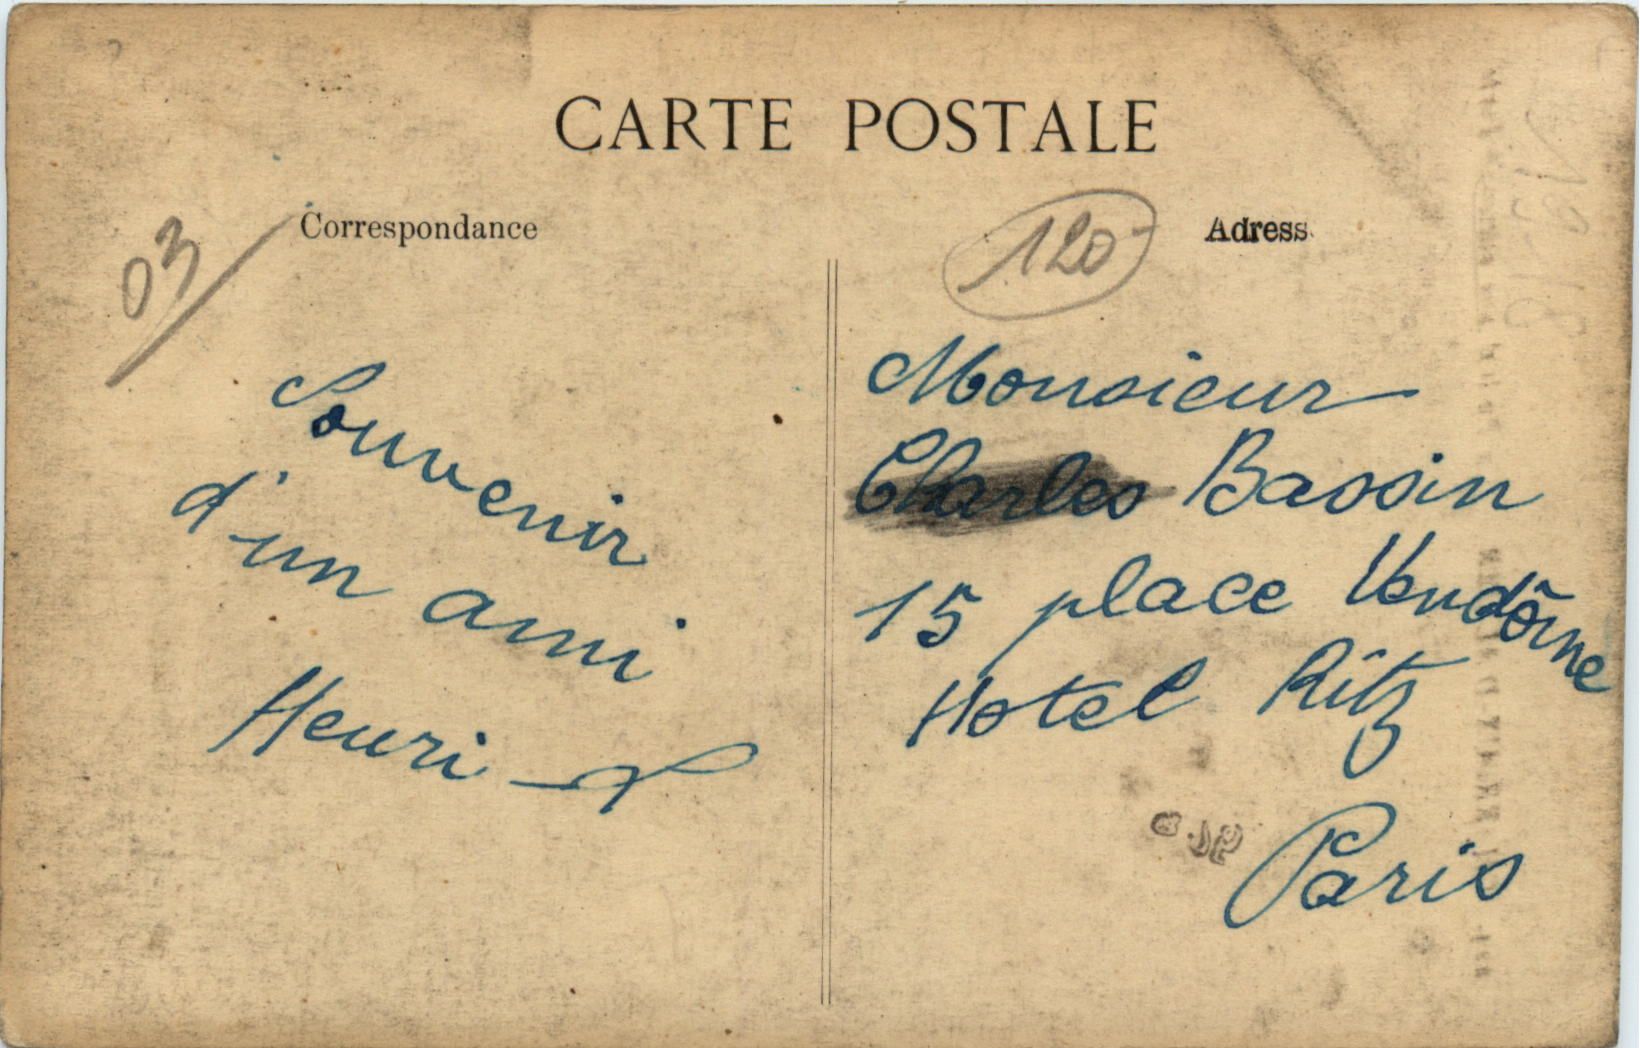 CARTE POSTALE
Correspondance
Adress
03
120
Souvenir
d'un ami
Henri
Monsieur
Charles Bassin
15 place Vendôme
Hotel Ritz
Paris